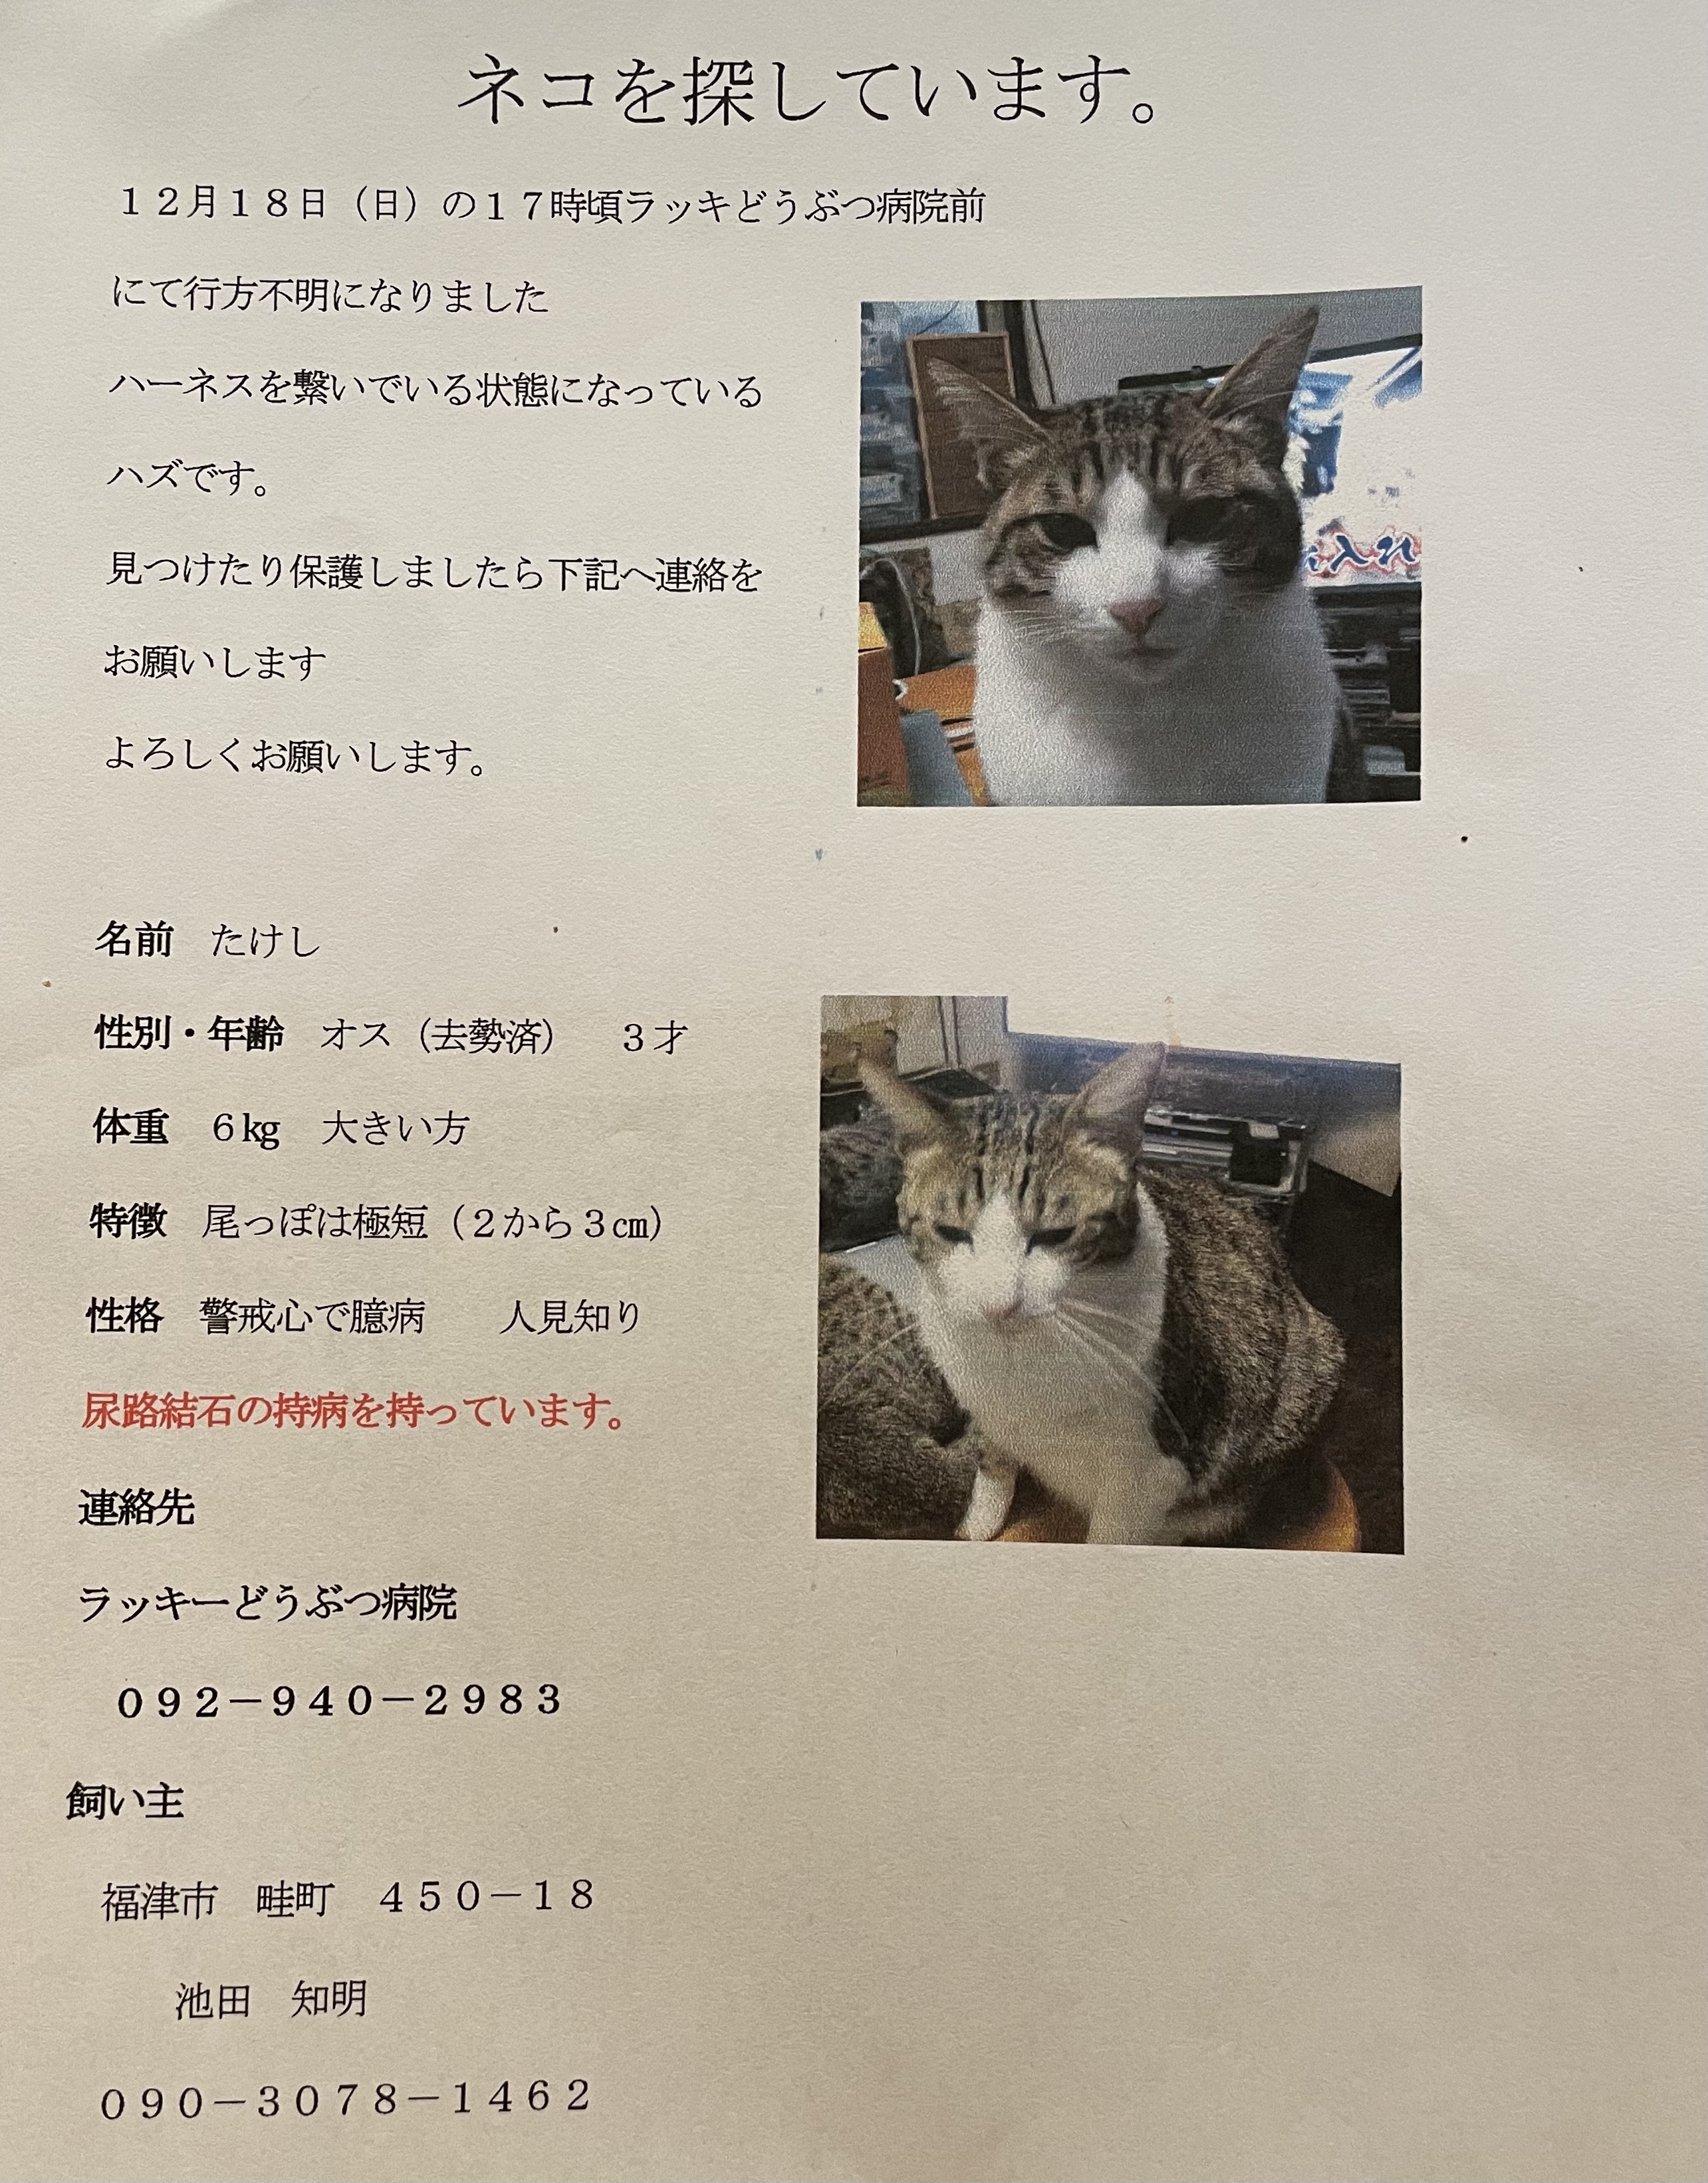 ネコを探しています。
１２月１８日（日）の１７時頃ラッキどうぶつ病院前
にて行方不明になりました
ハーネスを繋いでいる状態になっている
ハズです。
見つけたり保護しましたら下記へ連絡を
お願いします
よろしくお願いします。
入れ
名前　たけし
性別・年齢　オス（去勢済）　３才
体重　６kg　大きい方
特徴　尾っぽは極短（２から３㎝）
性格　警戒心で臆病　　人見知り
尿路結石の持病を持っています。
連絡先
ラッキーどうぶつ病院
０９２－９４０－２９８３
飼い主
福津市　畦町　４５０－１８
池田　知明
０９０－３０７８－１４６２